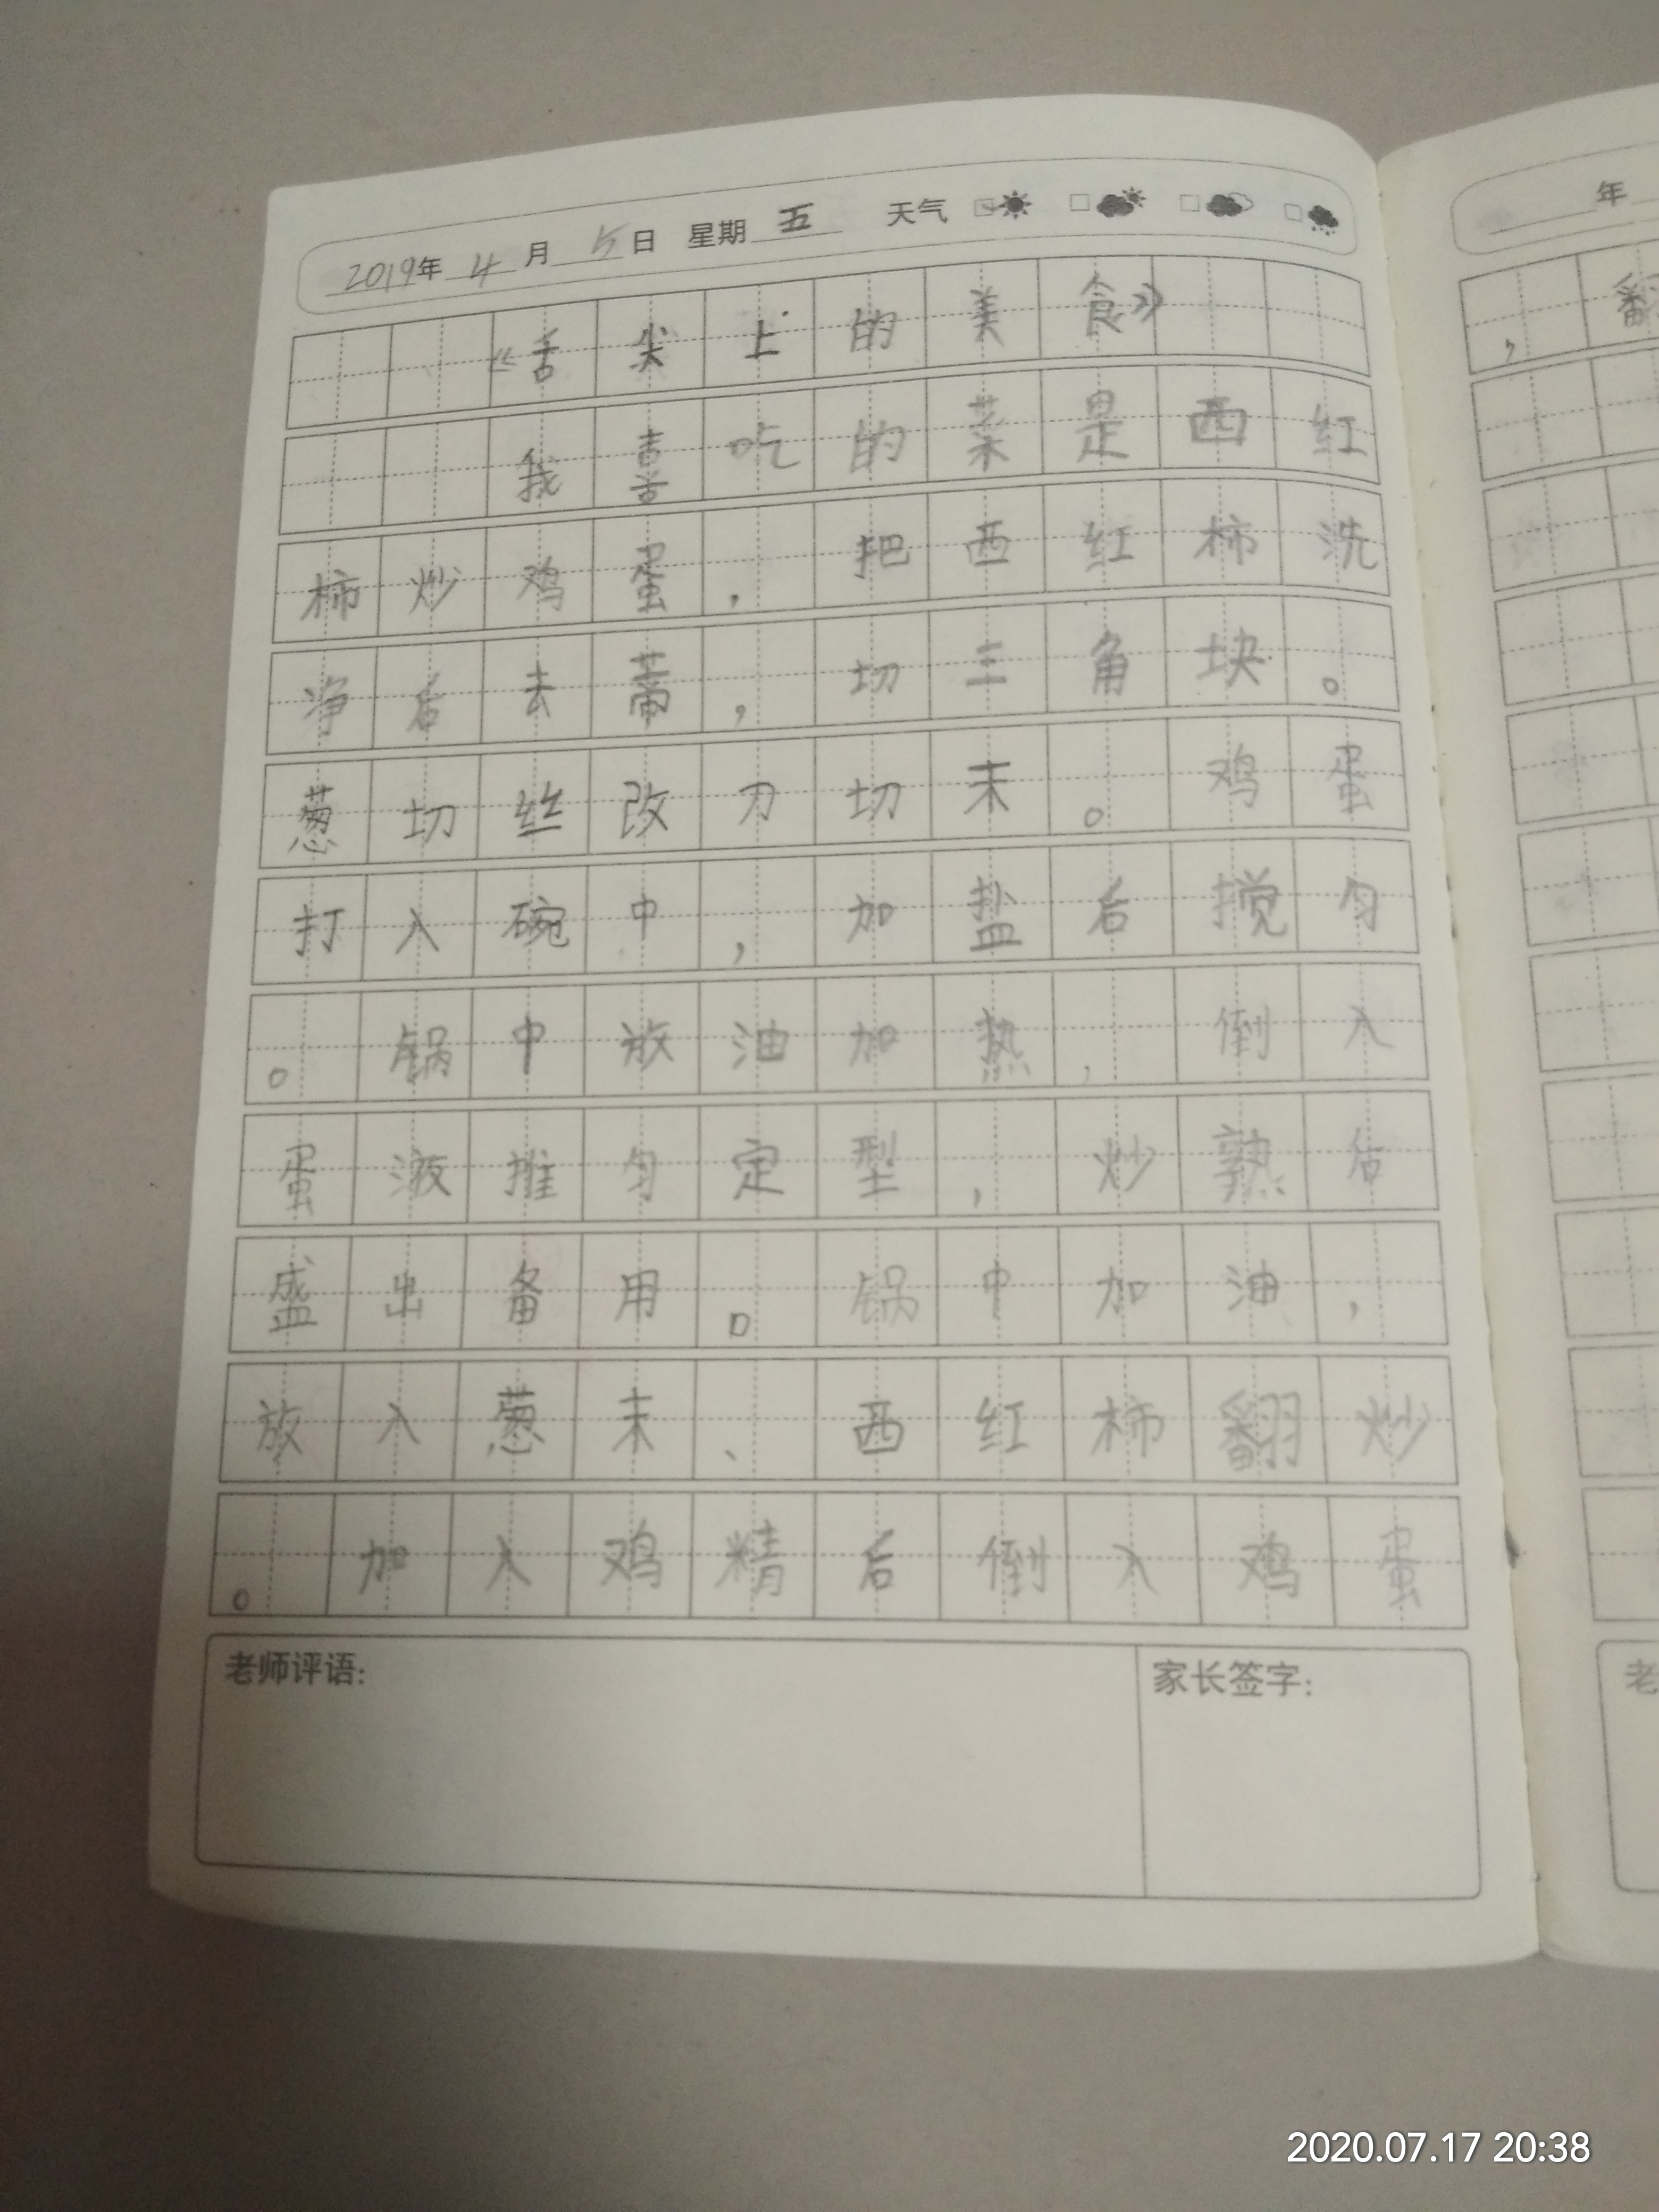 2019年 4 月 5 日 星期 五 天气
《舌尖上的美食》
我喜吃的菜是西红
柿炒鸡蛋，把西红柿洗
净后去蒂，切三角块。
葱切丝改刀切末。鸡蛋
打入碗中，加盐后搅匀
。锅中放油加热，倒入
蛋液推匀定型，炒熟后
盛出备用。锅中加油，
放入葱末、西红柿翻炒
。加入鸡精后倒入鸡蛋
老师评语:
家长签字:
年
，翻
老
2020.07.17 20:38